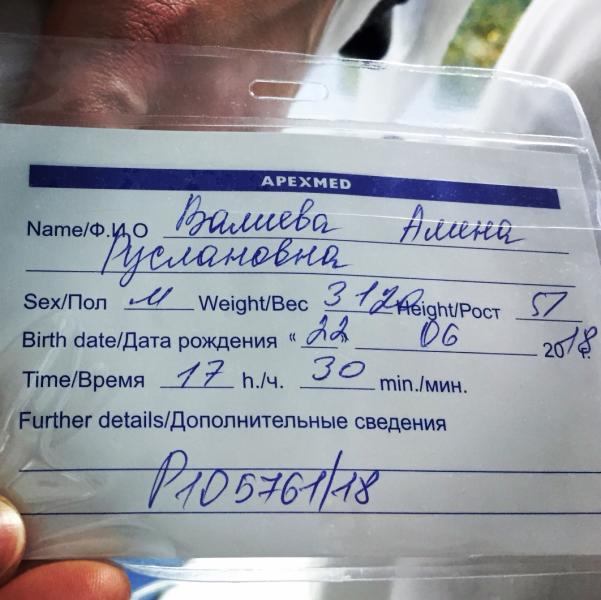 APEXMED
Name/Ф.И.О Валиева Алина
Руслановна
Sex/Пол М Weight/Вес 3120 Height/Рост 51
Birth date/Дата рождения “ 22 ” 06 2018 г.
Time/Время 17 h./ч. 30 min./мин.
Further details/Дополнительные сведения
Р105761/18